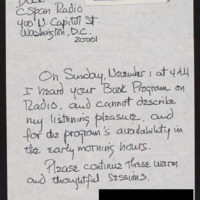 CSpan Radio
400 N. Capitol St.
Washington, D.C.
20001
On Sunday, November 1 at 4 AM
I heard your Book Program on
Radio, and cannot describe
my listening pleasure, and
for the program's availability in
the early morning hours.
Please continue these warm
and thoughtful sessions.